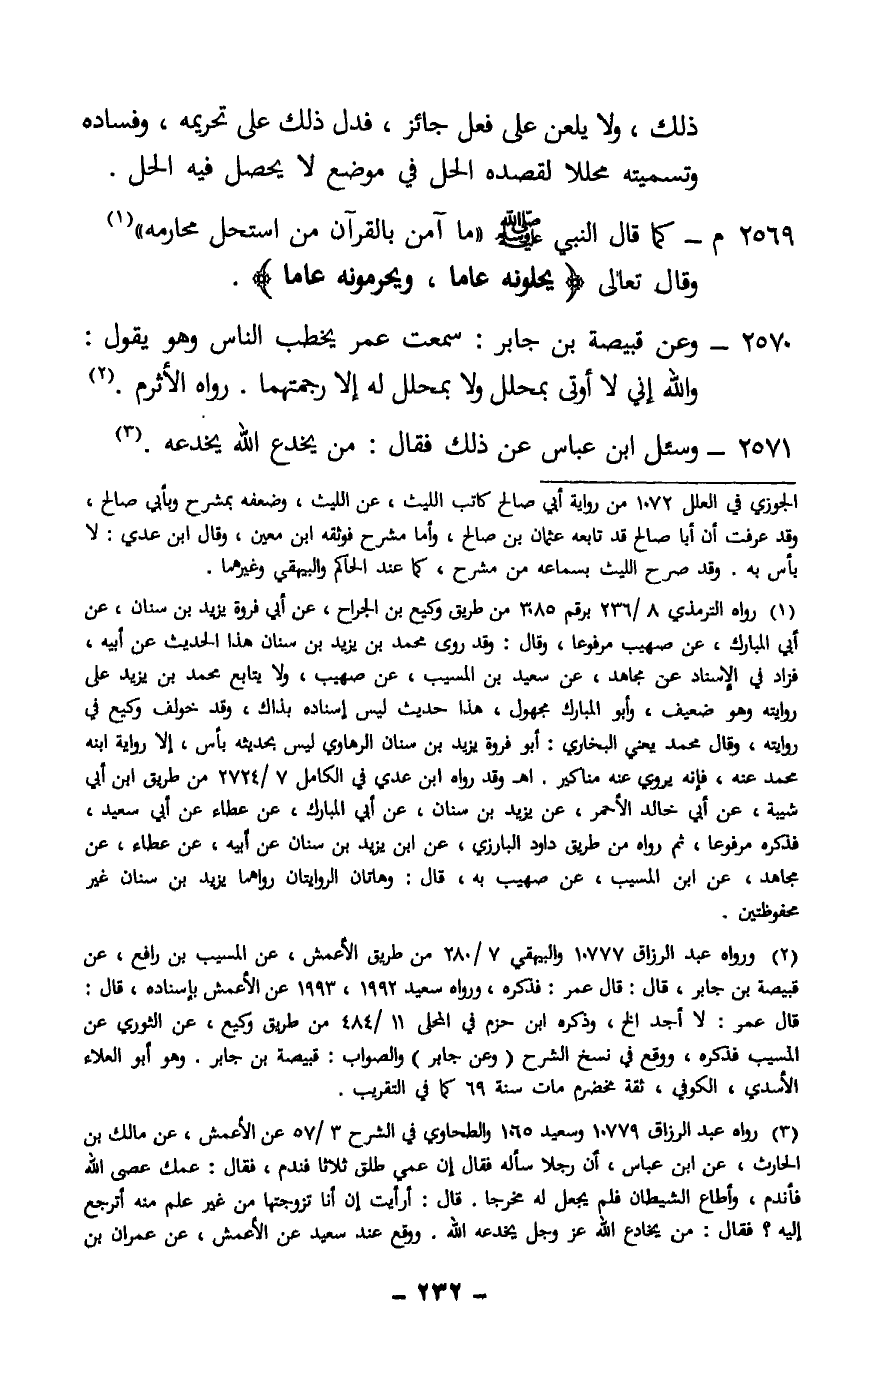 ذلك ، ولا يلعن على فعل جائز ، فدل ذلك على تحريمه ، وفساده
وتسميته محللا لقصده الحل في موضع لا يحصل فيه الحل .
٢٥٦٩ م ــ كما قال النبي ﷺ «ما آمن بالقرآن من استحل محارمه»(١)
وقال تعالى ﴿ يحلونه عاما ، ويحرمونه عاما ﴾ .
٢٥٧٠ ــ وعن قبيصة بن جابر : سمعت عمر يخطب الناس وهو يقول :
والله إني لا أوتى بمحلل ولا بمحلل له إلا رجمتهما . رواه الأثرم .(٢)
٢٥٧١ ــ وسئل ابن عباس عن ذلك فقال : من يخدع الله يخدعه .(٣)
الجوزي في العلل ١٠٧٢ من رواية أبي صالح كاتب الليث ، عن الليث ، وضعفه بمشرح وبأبي صالح ،
وقد عرفت أن أبا صالح قد تابعه عثمان بن صالح ، وأما مشرح فوثقه ابن معين ، وقال ابن عدي : لا
بأس به . وقد صرح الليث بسماعه من مشرح ، كما عند الحاكم والبيهقي وغيرهما .
(١) رواه الترمذي ٨ /٢٣٦ برقم ٣٠٨٥ من طريق وكيع بن الجراح ، عن أبي فروة يزيد بن سنان ، عن
أبي المبارك ، عن صهيب مرفوعا ، وقال : وقد روى محمد بن يزيد بن سنان هذا الحديث عن أبيه ،
فزاد في الإسناد عن مجاهد ، عن سعيد بن المسيب ، عن صهيب ، ولا يتابع محمد بن يزيد على
روايته وهو ضعيف ، وأبو المبارك مجهول ، هذا حديث ليس إسناده بذاك ، وقد خولف وكيع في
روايته ، وقال محمد يعني البخاري : أبو فروة يزيد بن سنان الرهاوي ليس بحديثه بأس ، إلا رواية ابنه
محمد عنه ، فإنه يروي عنه مناكير . اهـ وقد رواه ابن عدي في الكامل ٧ /٢٧٢٤ من طريق ابن أبي
شيبة ، عن أبي خالد الأحمر ، عن يزيد بن سنان ، عن أبي المبارك ، عن عطاء عن أبي سعيد ،
فذكره مرفوعا ، ثم رواه من طريق داود البارزي ، عن ابن يزيد بن سنان عن أبيه ، عن عطاء ، عن
مجاهد ، عن ابن المسيب ، عن صهيب به ، قال : وهاتان الروايتان رواهما يزيد بن سنان غير
محفوظتين .
(٢) ورواه عبد الرزاق ١٠٧٧٧ والبيهقي ٧ /٢٨٠ من طريق الأعمش ، عن المسيب بن رافع ، عن
قبيصة بن جابر ، قال : قال عمر : فذكره ، ورواه سعيد ١٩٩٢ ، ١٩٩٣ عن الأعمش بإسناده ، قال :
قال عمر : لا أجد الخ ، وذكره ابن حزم في المحلى ١١ /٤٨٤ من طريق وكيع ، عن الثوري عن
المسيب فذكره ، ووقع في نسخ الشرح ( وعن جابر ) والصواب : قبيصة بن جابر . وهو أبو العلاء
الأسدي ، الكوفي ، ثقة مخضرم مات سنة ٦٩ كما في التقريب .
(٣) رواه عبد الرزاق ١٠٧٧٩ وسعيد ١٠٦٥ والطحاوي في الشرح ٣ /٥٧ عن الأعمش ، عن مالك بن
الحارث ، عن ابن عباس ، أن رجلا سأله فقال إن عمي طلق ثلاثا فندم ، فقال : عمك عصى الله
فأندم ، وأطاع الشيطان فلم يجعل له مخرجا . قال : أرأيت إن أنا تزوجتها من غير علم منه أترجع
إليه ؟ فقال : من يخادع الله عز وجل يخدعه الله . ووقع عند سعيد عن الأعمش ، عن عمران بن
ــ ٢٣٢ ــ